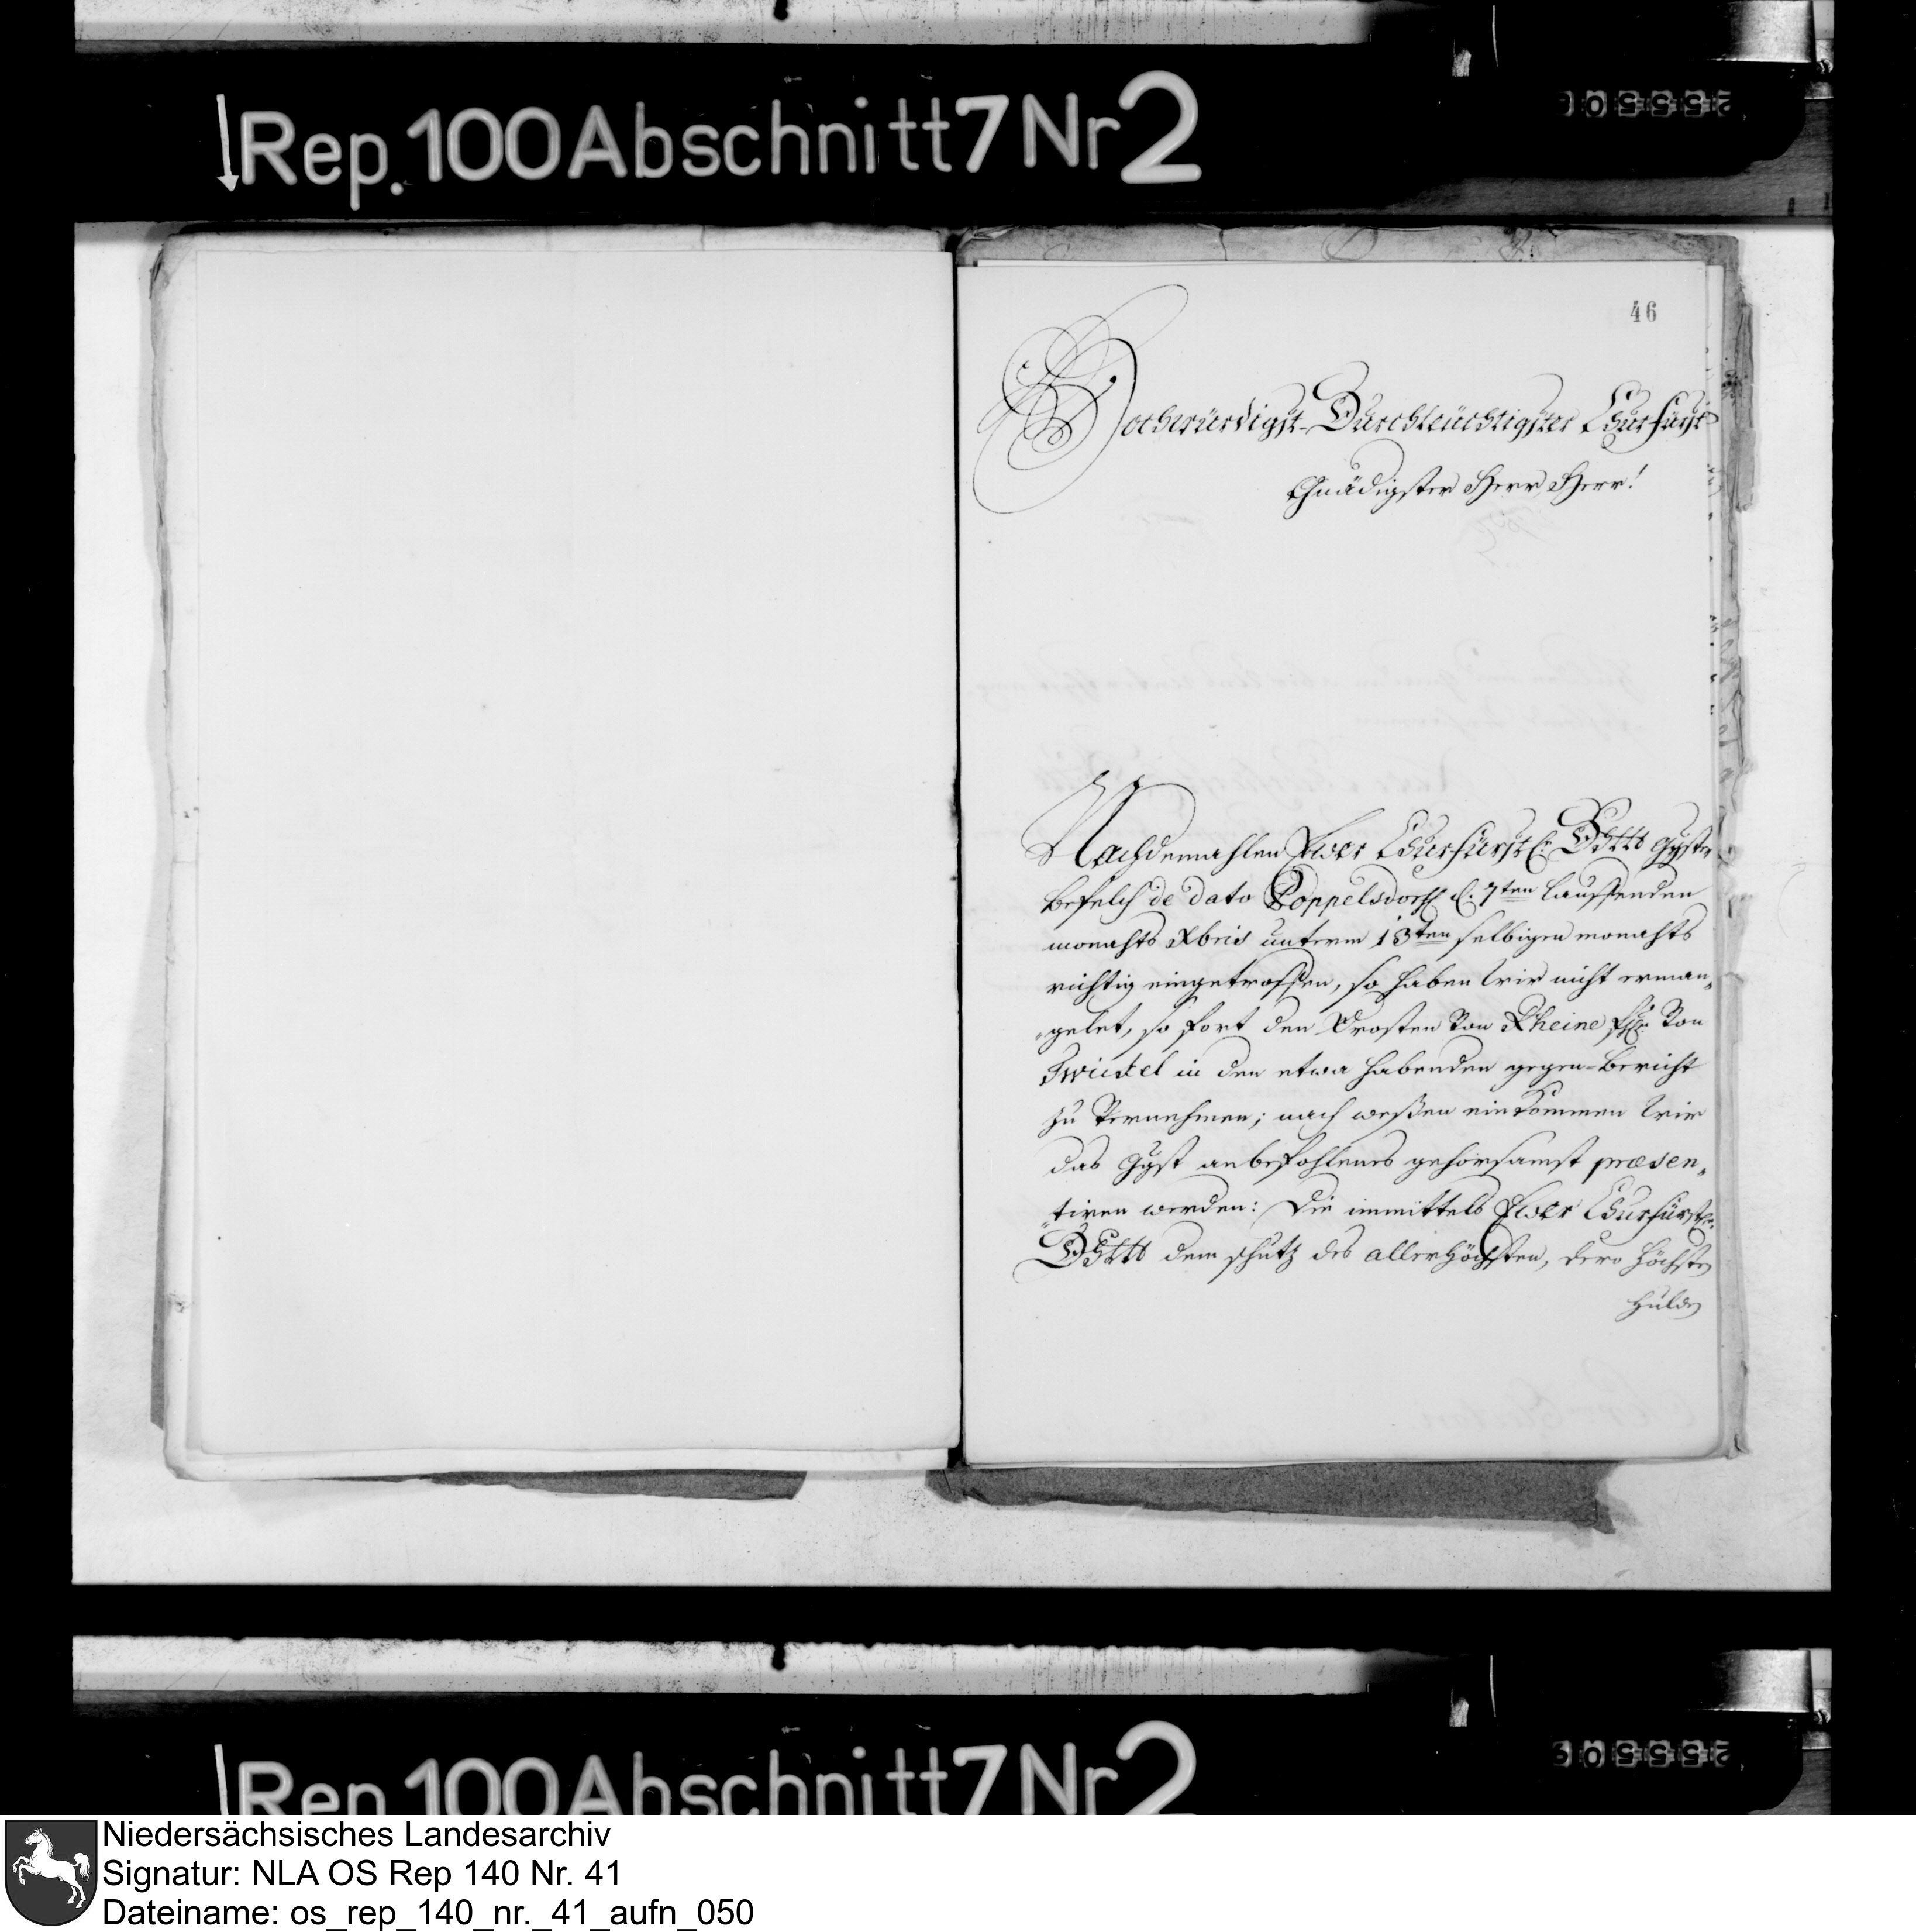 Rep. 100 Abschnitt 7 Nr 2
46
Hochwürdigst-Durchleüchtigster Churfürst
Gnädigster Herr Herr!
Nachdemahlen Ewer Churfürstl: Dhltt ggster
befelch de dato Poppelsdorff d: 7ten lauffenden
monahts Xbris unterm 13ten selbigen monahts
richtig eingetroffen, so haben wir nicht erman„
„gelet, so fort den Drosten von Rheine von
Twickel in den etwa habenden gegen-bericht
zu vernehmen; nach weßen einkommen wir
das ggst anbefohlenes gehorsamst præsen„
„tiren werden: Die inmittels Ewer Churfürstl:
Dhltt dem schutz des allerhöchsten, dero höchste
hulde
Rep. 100 Abschnitt 7 Nr 2
Niedersächsisches Landesarchiv
Signatur: NLA OS Rep 140 Nr. 41
Dateiname: os_rep_140_nr._41_aufn_050